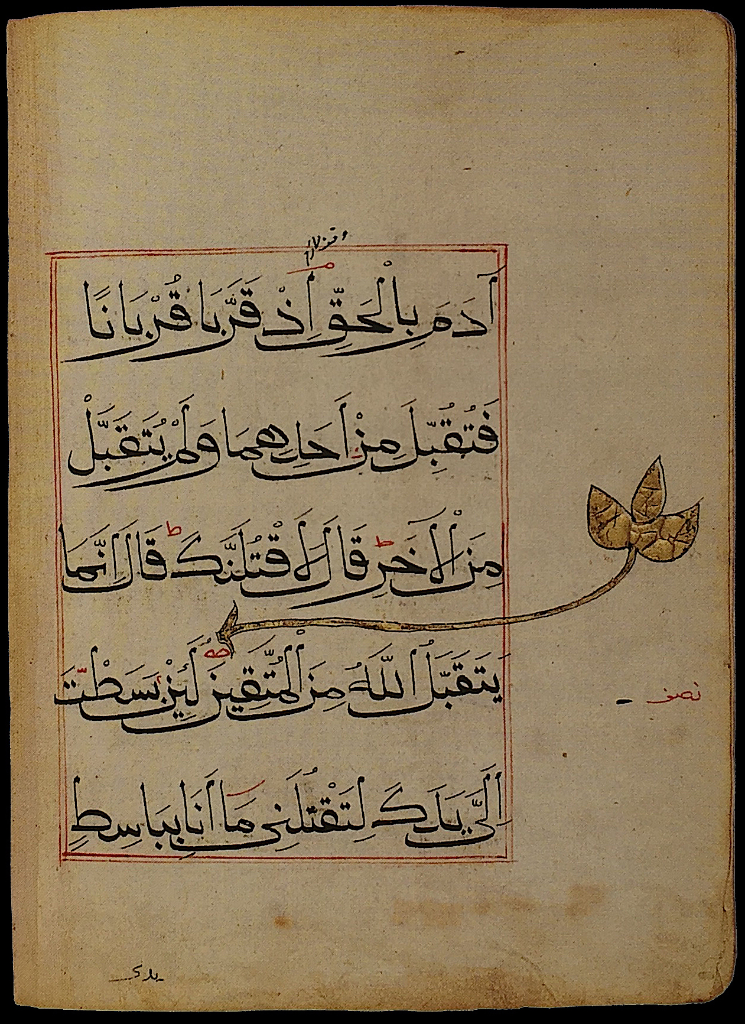 آدَمَ بِالْحَقِّ اِذْ قَرَّبَا قُرْبَانًا
فَتُقُبِّلَ مِنْ اَحَدِهِمَا وَلَمْ يُتَقَبَّلْ
مِنَ الْآخَرِ ط قَالَ لَاَقْتُلَنَّكَ ط قَالَ اِنَّمَا
يَتَقَبَّلُ اللّٰهُ مِنَ الْمُتَّقِينَ لَئِنْ بَسَطْتَ
نصف
اِلَيَّ يَدَكَ لِتَقْتُلَنِي مَا اَنَا بِبَاسِطٍ
يدى